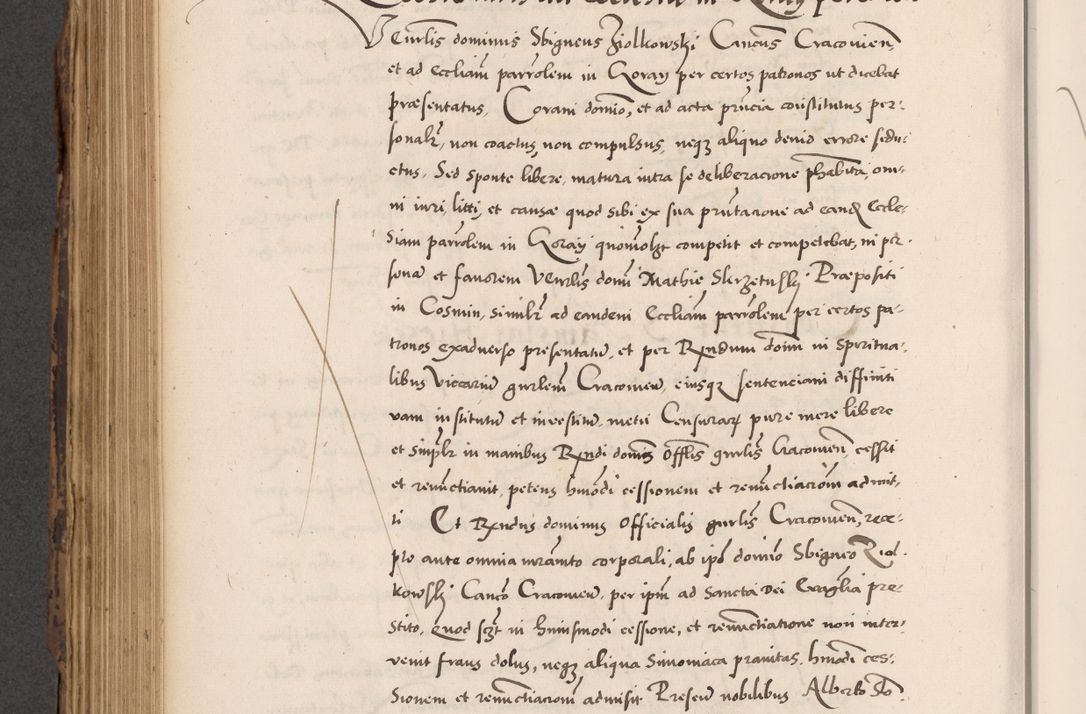 Venrlis dominus Sbigneus Ziolkowski Cancus Cracovien,
et ad Eccliam parrolem in Goray per certos patronos ut dicebat
præsentatus, Coram domio, et ad acta prncia constitutus per-
sonalr, non coactus, non compulsus, neqz aliquo denio errore sedu-
ctus, Sed sponte libere, matura intra se deliberacione phabita, om-
ni iuri, litti, et causæ quod sibi ex sua prntacione ad eand Eccle-
siam parrolem in Goray quomolzt competit et competebat, in per-
sona et favorem Venrlis domi Mathie Skrzetuski Præpositi
in Cosmin, similr ad eandem Eccliam parrolem per certos pa-
tronos exadverso presentati, et per Rendum domi in Spiritua-
libus Viccariu gnrlem Cracovien, eiusqz sentenciam diffiniti
vam institutu et investitu, metu Censurarz pure mere libere
et simplr in manibus Rendi domini Offlis gnrlis Cracovien, cessit
et renunctiavit, petens hmodi cessionem et renunctiaciom admit-
ti Et Rendus dominus Officialis gnrlis Cracovien, rece-
pto ante omnia iuramto corporali, ab ipo domino Sbigneo Ziol-
kowski Canco Cracovien, per ipm ad Sancta Dei Evaglia pre-
stito, Quod sczt in huiusmodi cessione, et renunctiatione non inter-
venit fraus dolus, neqz aliqua Simoniaca pravitas, hmodi ces-
sionem et renunctiaciom admisit Presen nobilibus Alberto